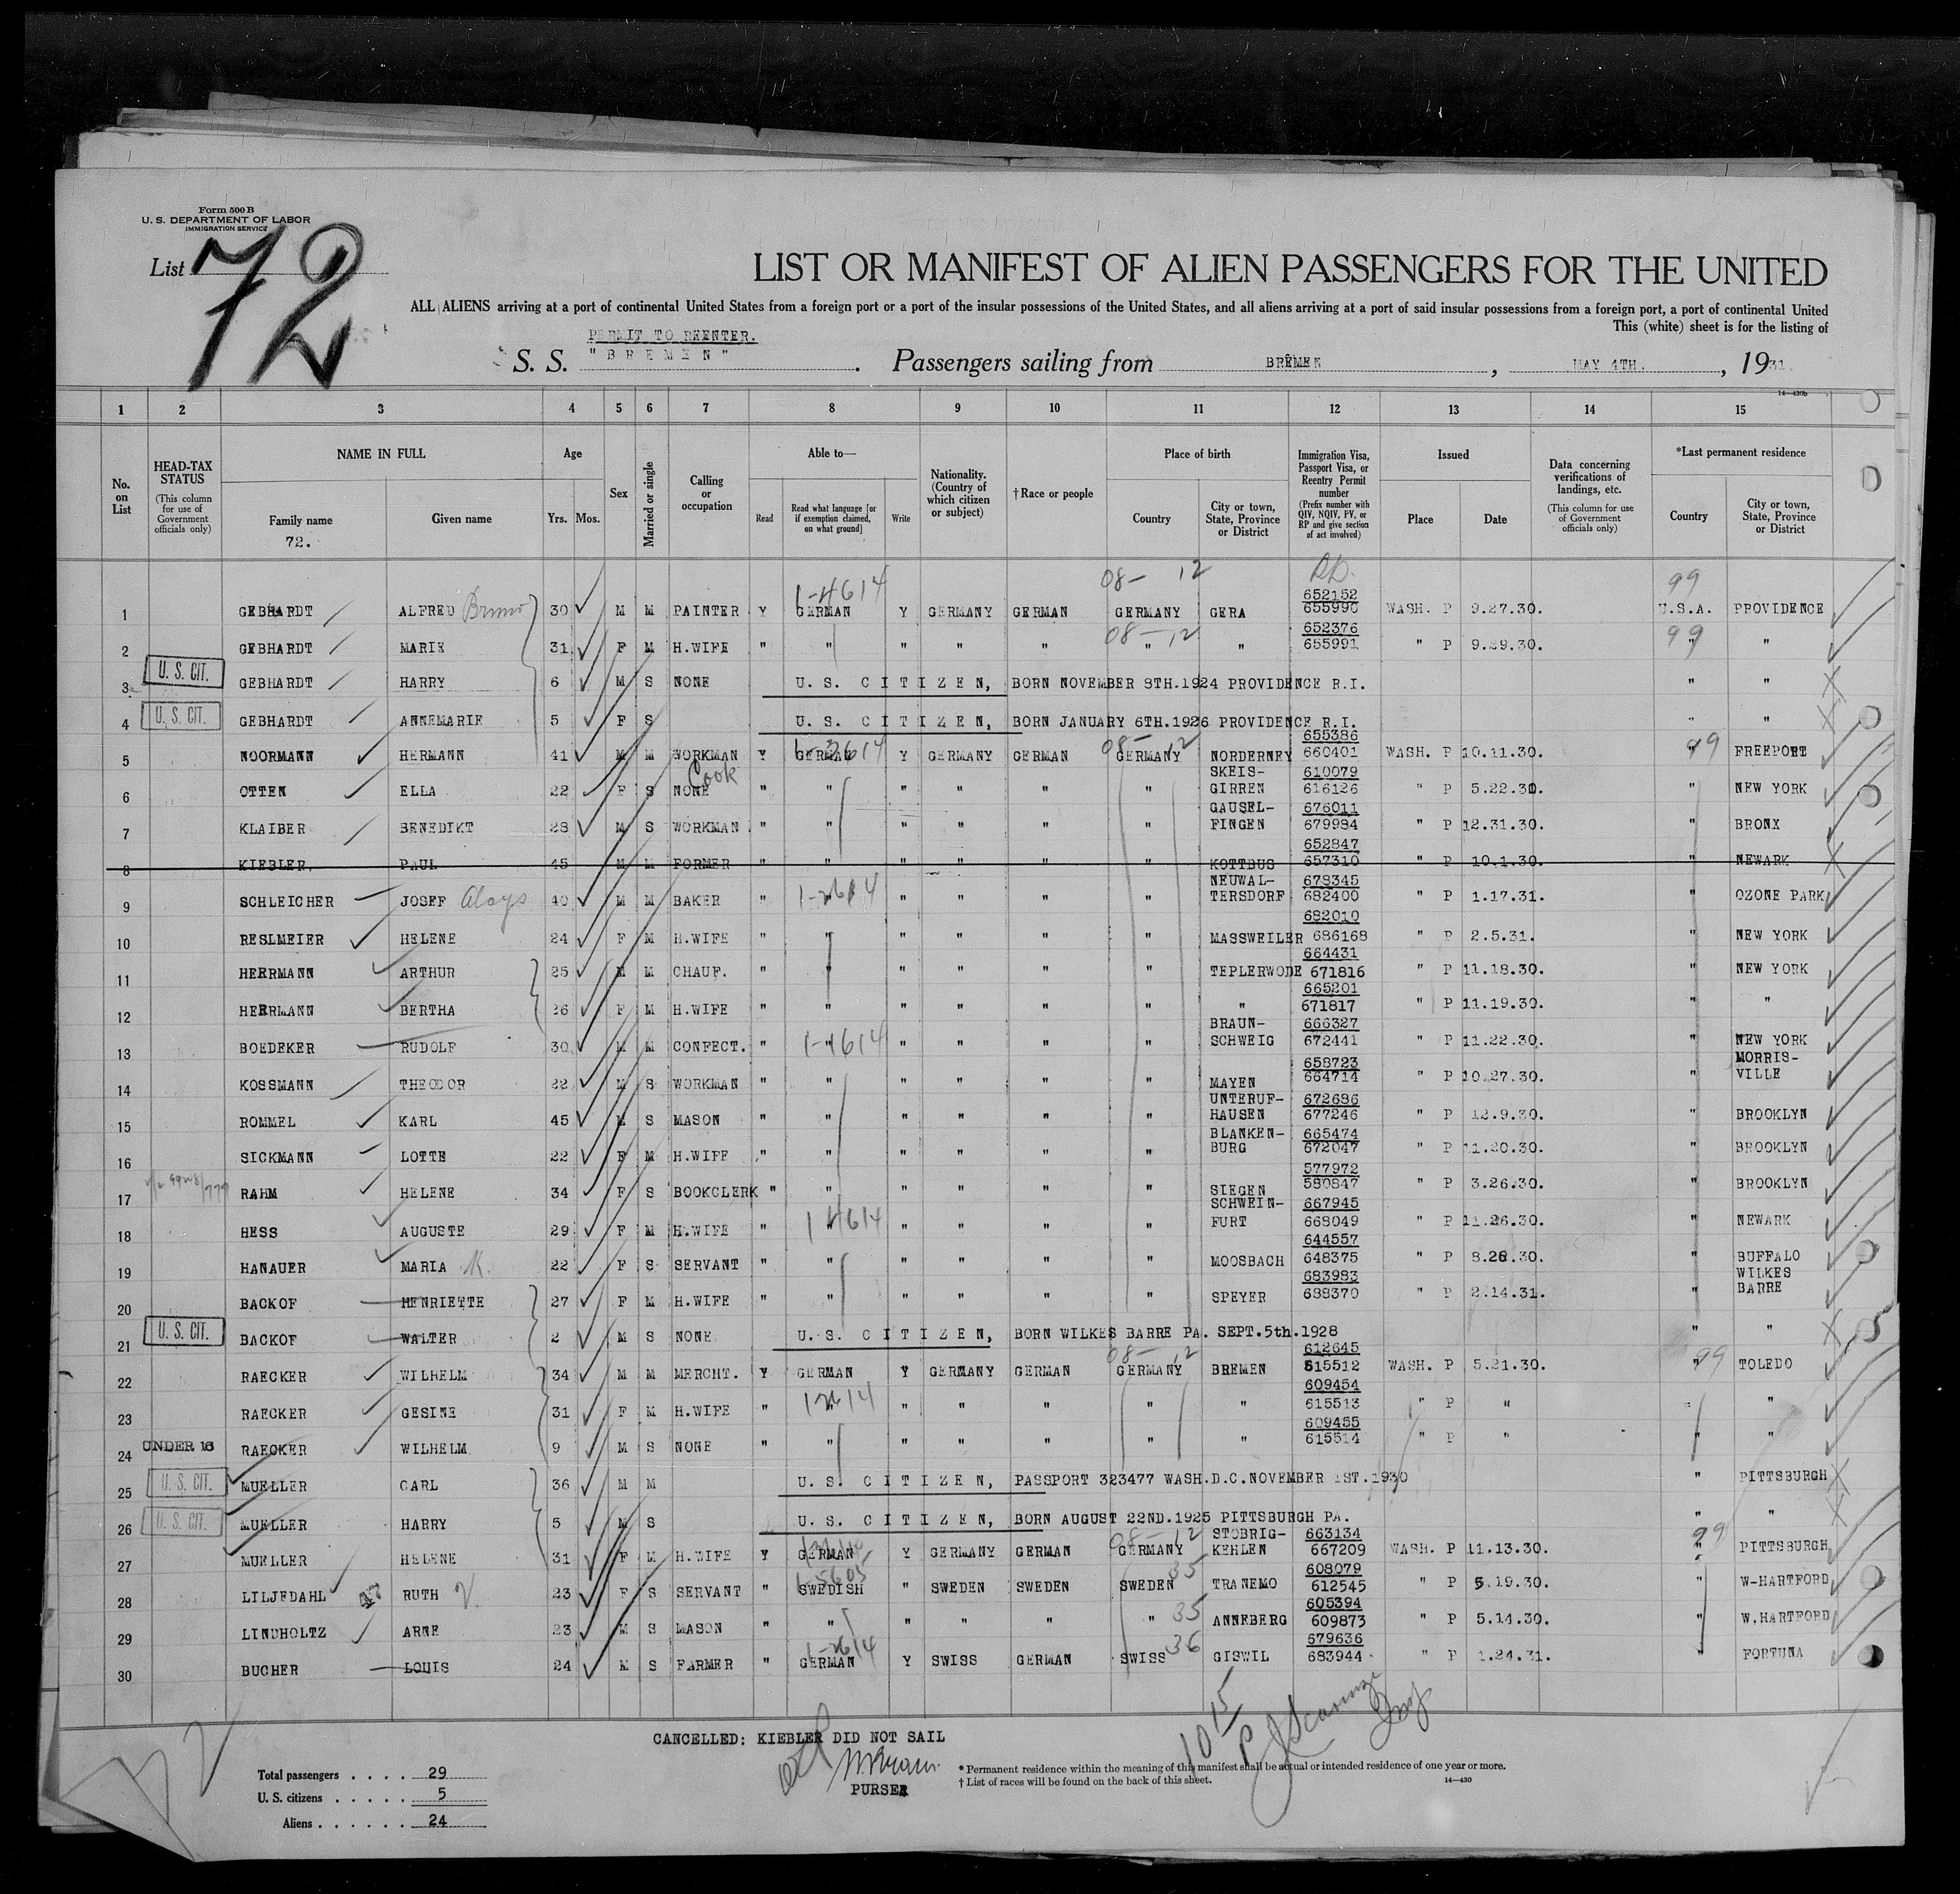 Form 500 B
U. S. DEPARTMENT OF LABOR
IMMIGRATION SERVICE
List 72
LIST OR MANIFEST OF ALIEN PASSENGERS FOR THE UNITED
ALL ALIENS arriving at a port of continental United States from a foreign port or a port of the insular possessions of the United States, and all aliens arriving at a port of said insular possessions from a foreign port, a port of continental United
This (white) sheet is for the listing of
PERMIT TO REENTER.
S. S. "BREMEN" . Passengers sailing from BREMEN , MAY 4TH. , 1931.
14—430b
1 2 3 4 5 6 7 8 9 10 11 12 13 14 15
No. on List
HEAD-TAX STATUS (This column for use of Government officials only)
NAME IN FULL
Family name
72.
Given name
Age
Yrs. Mos.
Sex
Married or single
Calling or occupation
Able to—
Read
Read what language [or if exemption claimed, on what ground]
Write
Nationality. (Country of which citizen or subject)
†Race or people
Place of birth
Country
City or town, State, Province or District
Immigration Visa, Passport Visa, or Reentry Permit number (Prefix number with QIV, NQIV, PV, or RP and give section of act involved)
Issued
Place Date
Data concerning verifications of landings, etc. (This column for use of Government officials only)
*Last permanent residence
Country
City or town, State, Province or District
1-4614 08- 12 99
1 GEBHARDT ALFRED Bruno 30 M M PAINTER Y GERMAN Y GERMANY GERMAN GERMANY GERA 652152 655990 WASH. P 9.27.30. U.S.A. PROVIDENCE
08-12 99
2 GEBHARDT MARIE 31 F M H.WIFE " " " " " " " 652376 655991 " P 9.29.30. " "
3 U. S. CIT. GEBHARDT HARRY 6 M S NONE U. S. CITIZEN, BORN NOVEMBER 8TH.1924 PROVIDENCE R.I. " "
4 U. S. CIT. GEBHARDT ANNEMARIE 5 F S U. S. CITIZEN, BORN JANUARY 6TH.1926 PROVIDENCE R.I. " "
5 NOORMANN HERMANN 41 M M WORKMAN Y GERMAN Y GERMANY GERMAN GERMANY NORDERNEY 655386 660401 WASH. P 10.11.30. " 99 FREEPORT
Cook
6 OTTEN ELLA 22 F S NONE " " " " " " SKEIS- GIRREN 610079 616126 " P 5.22.30. " NEW YORK
7 KLAIBER BENEDIKT 28 M S WORKMAN " " " " " " GAUSEL- FINGEN 676011 679984 " P 12.31.30. " BRONX
8 KIEBLER, PAUL 45 M M FORMER " " " " " " KOTTBUS 652847 657310 " P 10.1.30. " NEWARK
9 SCHLEICHER JOSEF Aloys 40 M M BAKER " 1-2614 " " " " NEUWAL- TERSDORF 678345 682400 " P 1.17.31. " OZONE PARK
10 RESLMEIER HELENE 24 F M H.WIFE " " " " " " MASSWEILER 682010 686168 " P 2.5.31. " NEW YORK
11 HERRMANN ARTHUR 25 M M CHAUF. " " " " " " TEPLERWODE 664431 671816 " P 11.18.30. " NEW YORK
12 HERRMANN BERTHA 26 F M H.WIFE " " " " " " " 665201 671817 " P 11.19.30. " "
13 BOEDEKER RUDOLF 30 M M CONFECT. " 1-4614 " " " " BRAUN- SCHWEIG 666327 672441 " P 11.22.30. " NEW YORK
14 KOSSMANN THEODOR 22 M S WORKMAN " " " " " " MAYEN 658723 664714 " P 10.27.30. " MORRIS- VILLE
15 ROMMEL KARL 45 M S MASON " " " " " " UNTERUF- HAUSEN 672686 677246 " P 12.9.30. " BROOKLYN
16 SICKMANN LOTTE 22 F M H.WIFE " " " " " " BLANKEN- BURG 665474 672047 " P 11.20.30. " BROOKLYN
17 RAHM HELENE 34 F S BOOKCLERK " " " " " " SIEGEN 577972 580847 " P 3.26.30. " BROOKLYN
18 HESS AUGUSTE 29 F M H.WIFE " 1 4614 " " " " SCHWEIN- FURT 667945 668049 " P 11.26.30. " NEWARK
19 HANAUER MARIA K. 22 F S SERVANT " " " " " " MOOSBACH 644557 648375 " P 8.26.30. " BUFFALO
20 BACKOF HENRIETTE 27 F M H.WIFE " " " " " " SPEYER 683983 688370 " P 2.14.31. " WILKES BARRE
21 U. S. CIT. BACKOF WALTER 2 M S NONE U. S. CITIZEN, BORN WILKES BARRE PA. SEPT.5th.1928 " "
08- 12
22 RAECKER WILHELM 34 M M MERCHT. Y GERMAN Y GERMANY GERMAN GERMANY BREMEN 612645 615512 WASH. P 5.21.30. " 99 TOLEDO
23 RAECKER GESINE 31 F M H.WIFE " 12614 " " " " " 609454 615513 " P " " "
24 UNDER 16 RAECKER WILHELM 9 M S NONE " " " " " " " 609455 615514 " P " " "
25 U. S. CIT. MUELLER CARL 36 M M U. S. CITIZEN, PASSPORT 323477 WASH.D.C.NOVEMBER 1ST.1930 " PITTSBURGH
26 U. S. CIT. MUELLER HARRY 5 M S U. S. CITIZEN, BORN AUGUST 22ND.1925 PITTSBURGH PA. " "
08- 12 99
27 MUELLER HELENE 31 F M H.WIFE Y GERMAN Y GERMANY GERMAN GERMANY STOBRIG- KEHLEN 663134 667209 WASH. P 11.13.30. " PITTSBURGH
28 LILJEDAHL RUTH V. 23 F S SERVANT " 1-5605 SWEDISH " SWEDEN SWEDEN SWEDEN 35 TRANEMO 608079 612545 " P 5.19.30. " W-HARTFORD
29 LINDHOLTZ ARNE 23 M S MASON " " " " " " 35 ANNEBERG 605394 609873 " P 5.14.30. " W.HARTFORD
30 BUCHER LOUIS 24 M S FARMER " 1-2614 GERMAN Y SWISS GERMAN SWISS 36 GISWIL 679636 683944 " P 1.24.31. " FORTUNA
CANCELLED: KIEBLER DID NOT SAIL
PURSER
10 15
Total passengers . . . . 29
U. S. citizens . . . . . 5
Aliens . . . . . . 24
* Permanent residence within the meaning of this manifest shall be actual or intended residence of one year or more.
† List of races will be found on the back of this sheet.
14—430